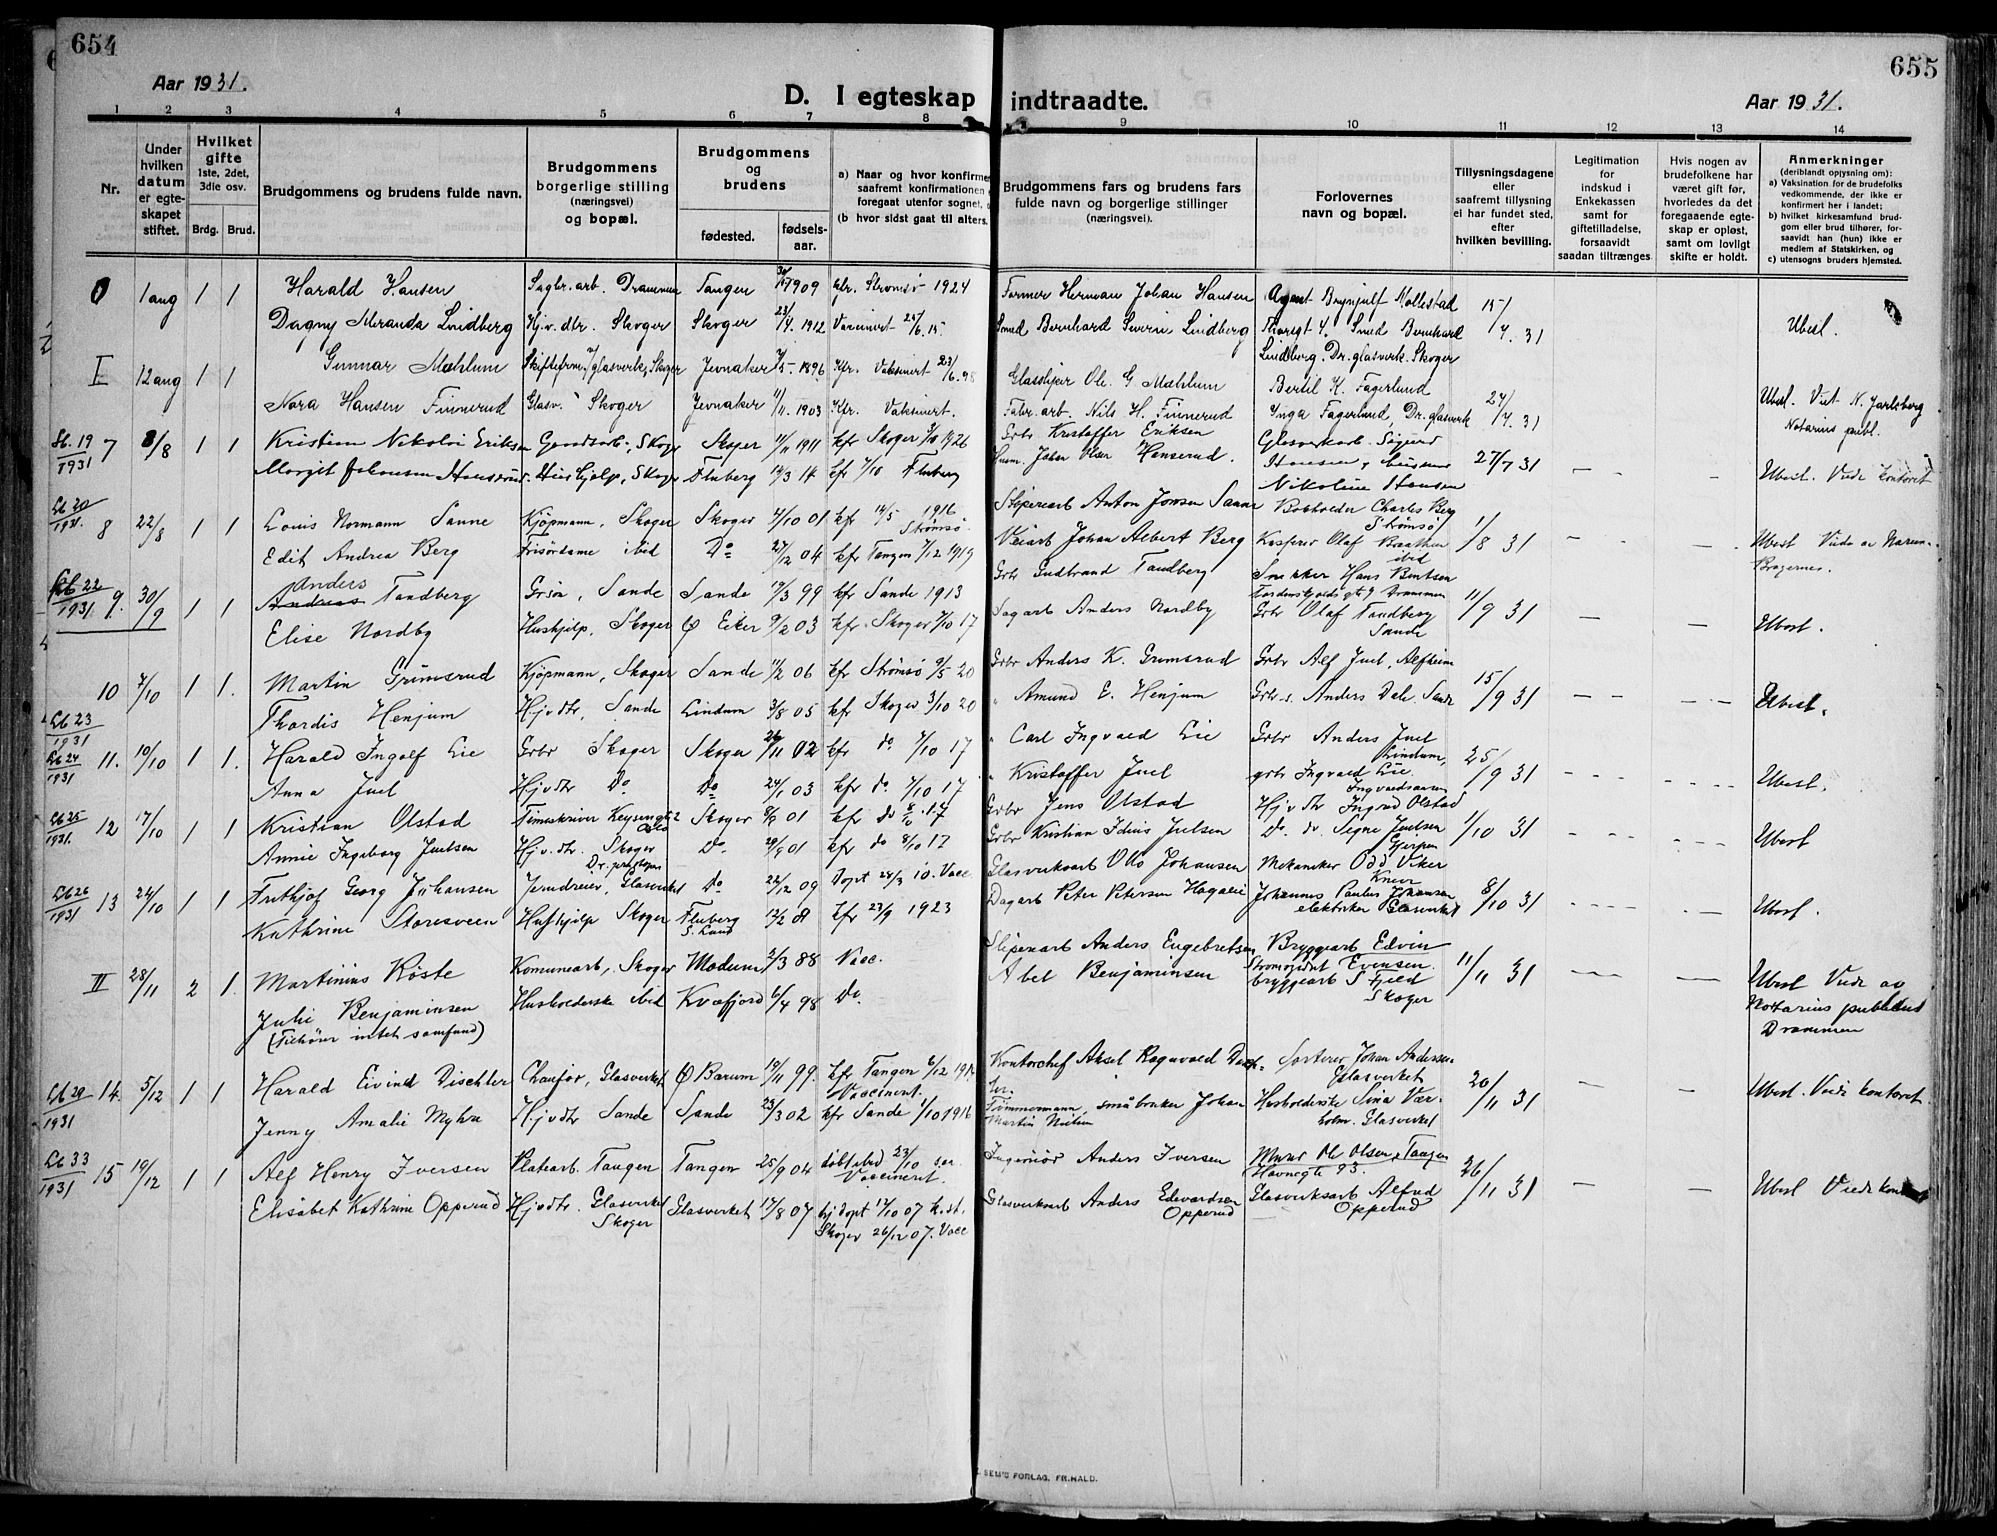 654
655
Aar 1931.
D. I egteskap indtraadte.
Aar 1931.
1 2 3 4 5 6 7 8 9 10 11 12 13 14
Nr.
Under hvilken datum er egteskapet stiftet.
Hvilket gifte 1ste, 2det, 3die osv.
Brdg. Brud.
Brudgommens og brudens fulde navn.
Brudgommens borgerlige stilling (næringsvei) og bopæl.
Brudgommens og brudens
fødested.
fødselsaar.
a) Naar og hvor konfirme
saafremt konfirmationen
foregaat utenfor sognet,
(b hvor sidst gaat til alters.
Brudgommens fars og brudens fars fulde navn og borgerlige stillinger (næringsvei).
Forlovernes navn og bopæl.
Tillysningsdagene eller saafremt tillysning ei har fundet sted, efter hvilken bevilling.
Legitimation for indskud i Enkekassen samt for giftetilladelse, forsaavidt saadan tiltrænges.
Hvis nogen av brudefolkene har været gift før, hvorledes da det foregaaende egteskap er opløst, samt om lovligt skifte er holdt.
Anmerkninger (deriblandt oplysning om): a) Vaksination for de brudefolks vedkommende, der ikke er konfirmert her i landet; b) hvilket kirkesamfund brudgom eller brud tilhører, forsaavidt han (hun) ikke er medlem af Statskirken, og c) utensogns bruders hjemsted.
0 1 aug 1 1 Harald Hansen Sagbr.arb. Drammen Tangen 1909 Strømsø 1924 Former Herman Johan Hansen Agent Brynjulf Mollestad 15/4.31 Ubesl.
Dagny Meranda Lindberg Hj.v.dtr. Skoger Skoger 23/4.1912 Vaccinert Smed Bernhard Severin Lindberg Smed Bernhard
Lindberg. Dr.glasverk. Skoger
I 12 aug 1 1 Gunnar Mæhlum glasverk, Skoger Jevnaker 1896 Kfr. Vaksinert 23/6.98 Ole G. Mæhlum Bertil K. Fagerlund 27/4.31 Ubesl. Viet N. Jarlsberg
Nora Hansen Finnerud Glasv. Skoger Jevnaker 11/11.1903 Kfr. Vaksinert. Fabr.arb. Nils H. Finnerud Inga Fagerlund, Dr.glasverk Notarius publ.
Lb. 19/1931 7 8/8 1 1 Kristian Nikolai Eriksen Skoger Skoger 11/11 1911 kfr Skoger 3/10 1926 Grbr Kristoffer Eriksen Glasverkarb. Sigurd 27/7 31 — — Ubesl. Viede kontoret
Margit Johansen Hushjelp, Skoger Fluberg 14/3 14 kfr 7/10 Fluberg Husm. Johan Olsen Henserud. Hansen, Nikoline Hansen
Lb 20/1931. 8 22/8 1 1 Louis Normann Sanne Kjøpmann, Skoger Skoger 4/10 01 kfr 14/5 1916 Strømsø. Sliperiarb Anton Jonsen Sanne Charles Berg Strømsø 1/8 31 — — Ubesl
Edit Andrea Berg Frisørdame ibid Do 27/12 04 kfr Tangen 7/12 1919 Veiarb Johan Albert Berg Kasserer Olaf Braathen ibid Bragernes.
Lb 22/1931 9. 30/9 1 1 Anders Tandberg Grsøn, Sande Sande 19/3 99 kfr Sande 1913 Gbr Gudbrand Tandberg Snekker Hans Bentsen Tordenskjolds gt 9 Drammen 11/9 31 — — Ubesl.
Elise Nordby Hushjelp, Skoger Ø Eiker 9/2 03 kfr. Skoger 7/10 17 Sagarb Anders Nordby Grbr Olaf Tandberg Sande
10 7/10 1 1. Martin Grimsrud Kjøpmann, Skoger Sande 11/2 06 kfr Strømsø 9/5 20 Grbr Anders K. Grimsrud Grbr Alf Juel, Alfheim 15/9 31 — — Ubesl.
Lb 23/1931 Thordis Henjum Hjvdtr, Sande Lindum 3/8 05 kfr Skoger 3/10 20 " Amund E. Henjum Grbr.s. Anders Dale Sande
Lb 24/1931 11. 10/10 1 1. Harald Ingolf Lie Grbr Skoger Skoger 26/11 02 kfr do 7/10 17 " Carl Ingvald Lie Grbr Anders Juel Lindum, 25/9 31 Ubesl.
Anna Juel Hjvdtr Do Do 24/1 03 kfr do. 7/10 17 " Kristoffer Juel grbr Ingvald Lie Ingvaldsausen
Lb 25/1931. 12 17/10 1 1 Kristian Olstad Timeskriver Keysersgt 2 Oslo Skoger 8/9 01 kfr do 8/10 17 Grbr Jens Olstad Hjvdtr Ingrid Olstad 1/10 31 Ubesl
Annie Ingeborg Juelsen Hj.v.dtr. Skoger Do. 29/9 01 kfr do 8/10 17 Grbr Kristian Idius Juelsen Do. do Signe Juelsen Gjerpen
Lb 26/1931 13 24/10 1 1 Frithjof Georg Johansen Jerndreier, Glasverket Do 22/12 09 Døpt 28/3 10. Vacc Glasverksarb Otto Johansen Mekaniker Odd Viker 8/10 31 Ubesl.
Kathrine Storesveen Hushjelp Skoger Fluberg S. Land 12/2 08 kfr 23/9 1923 Dagarb Peter Petersen Johannes Paulus Johansen elektriker Glasverket
II 28/11 2 1 Martinius Røste Komunearb, Skoger Modum 2/3 88 Vacc. Sliperiarb Anders Engebretsen Bryggearb Edvin Evensen. 11/11 31 — — Ubesl Viede av
Julie Benjaminsen Husholderske ibid Kvæfjord 6/4 98 Do Abel Benjaminsen bryggearb S Fjeld Skoger Notarius publicus
(Tilhører intet samfund) Drammen
Lb 29/1931 14. 5/12 1 1 Harald Eivind Dischler Chaufør, Glasverket Ø Bærum 19/11 99. kfr Tangen 6/12 Vaccinert. Kontorchef Aksel Ragnvald Sorterer Johan Andersen Glasverket 20/11 31 — — Ubesl. Viede kontoret.
Jenny Amalie Myhre Hjvdtr Sande Sande 23/3 02 kfr Sande 1/10 1916 Tømmermann, småbruker Johan Martin Nielsen Husholderske Sina Værholm. Glasverket
Lb 33/1931 15 19/12 1 1 Alf Henry Iversen Platearb. Tangen Tangen 25/9 04 døbt ibid 23/10 s.a. Vaccinert. Ingeniør Anders Iversen Murer Ole Olsen, Tangen Havnegt 93. 26/11 31 — — Ubesl Viede kontoret
Elisabet Kathrine Opperud Hjvdtr. Glasverket Skoger Glasverket 17/8 07 hj.døpt 17/10 07 k.st. Skoger 26/12 07. Vacc Glasverksarb Anders Edvardsen Opperud Glasverksarb Alfred Opperud
SEM'S FORLAG, FR.HALD.